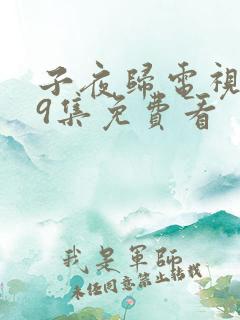 子夜歸電視
9集免費看
我是軍師
未任同意禁止转载